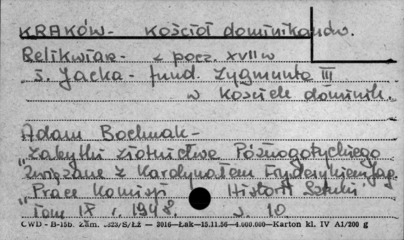 KRAKÓW- Kościół dominikanów.
Relikwiarz- z pocz. XVII w
ś. Jacka - fund. Zygmunta III
w kościele dominik.
Adam Bochnak-
"Zabytki złotnictwa Późnogotyckiego
związane z Kardynałem Fryderykiem Jag.
"Prace Komisji Historii Sztuki
Tom IX r. 1948. s. 10
CWD - B-15b. Zam. /Łz — 2016—Łak—15.11.56—4.000.000—Karton kl. IV A1/200 g